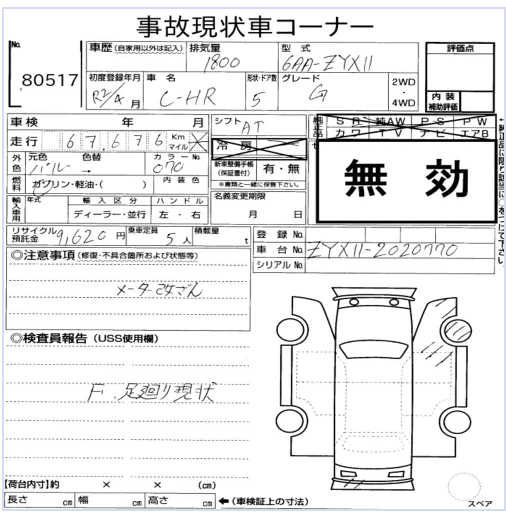 事故現状車コーナー
No. 80517
車歴 (自家用以外は記入) 排気量 1800 型式 6AA-ZYX11 評価点
初度登録年月 R2/4月 車名 C-HR 形状・ドア数 5 グレード G 2WD ・ 4WD 内装 補助評価
車検 年 月 シフト AT 純正品 SR 純AW PS PW
走行 67,676 Km マイル 冷房 カワ TV ナビ エアB
外色 元色 パール → 色替 カラーNo. 070 新車整備手帳 (保証書付) 有・無
※書類と一緒に保管下さい。
無効
燃料 ガソリン・軽油・( ) 内装色 名義変更期限
輸入車用 年式 輸入区分 ディーラー・並行 ハンドル 左・右 月 日
リサイクル預託金 9,620円 乗車定員 5人 積載量 t 登録No.
車台No. ZYX11-2020770
シリアルNo.
◎注意事項 (修復・不具合箇所および状態等)
メーター改ざん
◎検査員報告 (USS使用欄)
F. 足廻り現状
【荷台内寸】約 × × (cm)
長さ cm 幅 cm 高さ cm ←(車検証上の寸法)
スペア